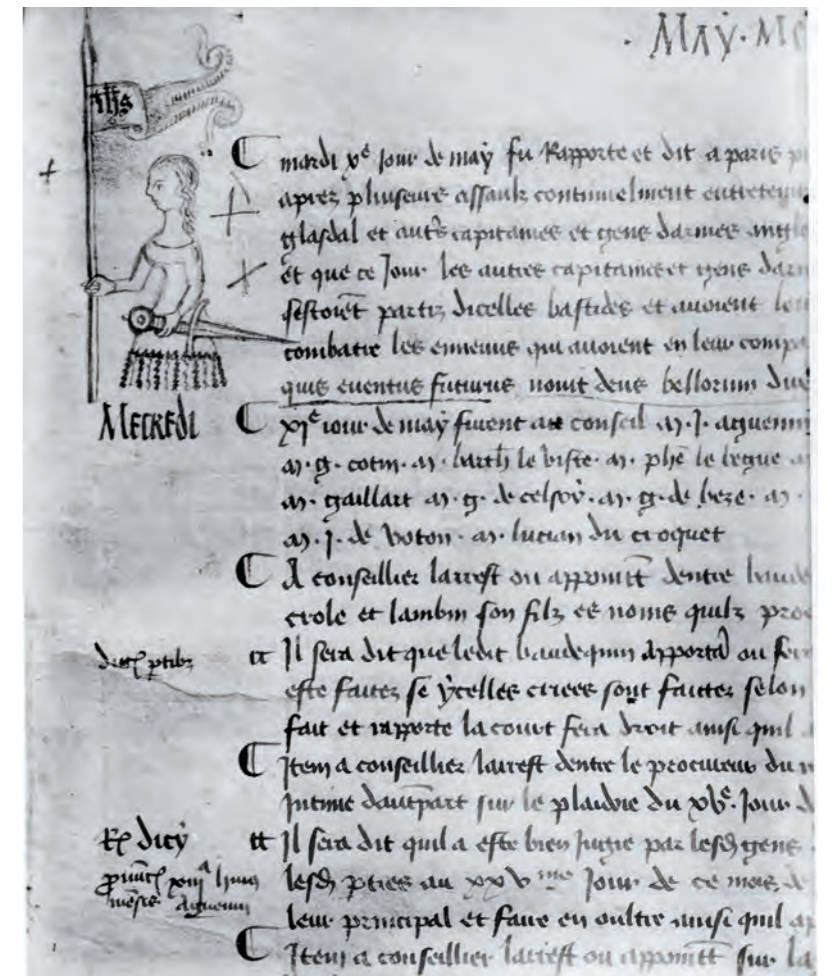 May. Me
Jhs
mardi xe jour de may fu Rapporte et dit a paris p
aprez pluseurs assaulz continuelment entretenu
glasdal et autrs capitaines et gens darmes angl
et que ce Jour les autres capitaines et gens darm
sestoiēt partiz dicelles bastides et avoient le
combatre les ennemis qui avoient en leur comp
quis eventus futurus novit deus bellorum du
MECREDI
xje jour de may furent au conseil m. J. aguenin
m. g. cotin. m. barth le viste. m. phe le begue
m. gaillart m. g. de celsoy. m. g. de beze. m.
m. J. de voton. m. lucian du croquet
A conseillier larrest ou appoinctt dentre baude
crole et lambin son filz es noms quilz pro
Il sera dit que ledit baudequin apporta ou fer
este faitez se ycelles criees sont faittez selon
fait et rapporte la court fera droit ainsi quil
Item a conseillier larrest dentre le procureur du
Intime dautrepart sur le plaidoie du xve. Jour d
Il sera dit quil a este bien Jugie par lesd gens
lesd pties au xxvme Jour de ce mois de
leur principal et faire en oultre ainsi quil ap
Item a conseillier larrest ou appoinctt sur la